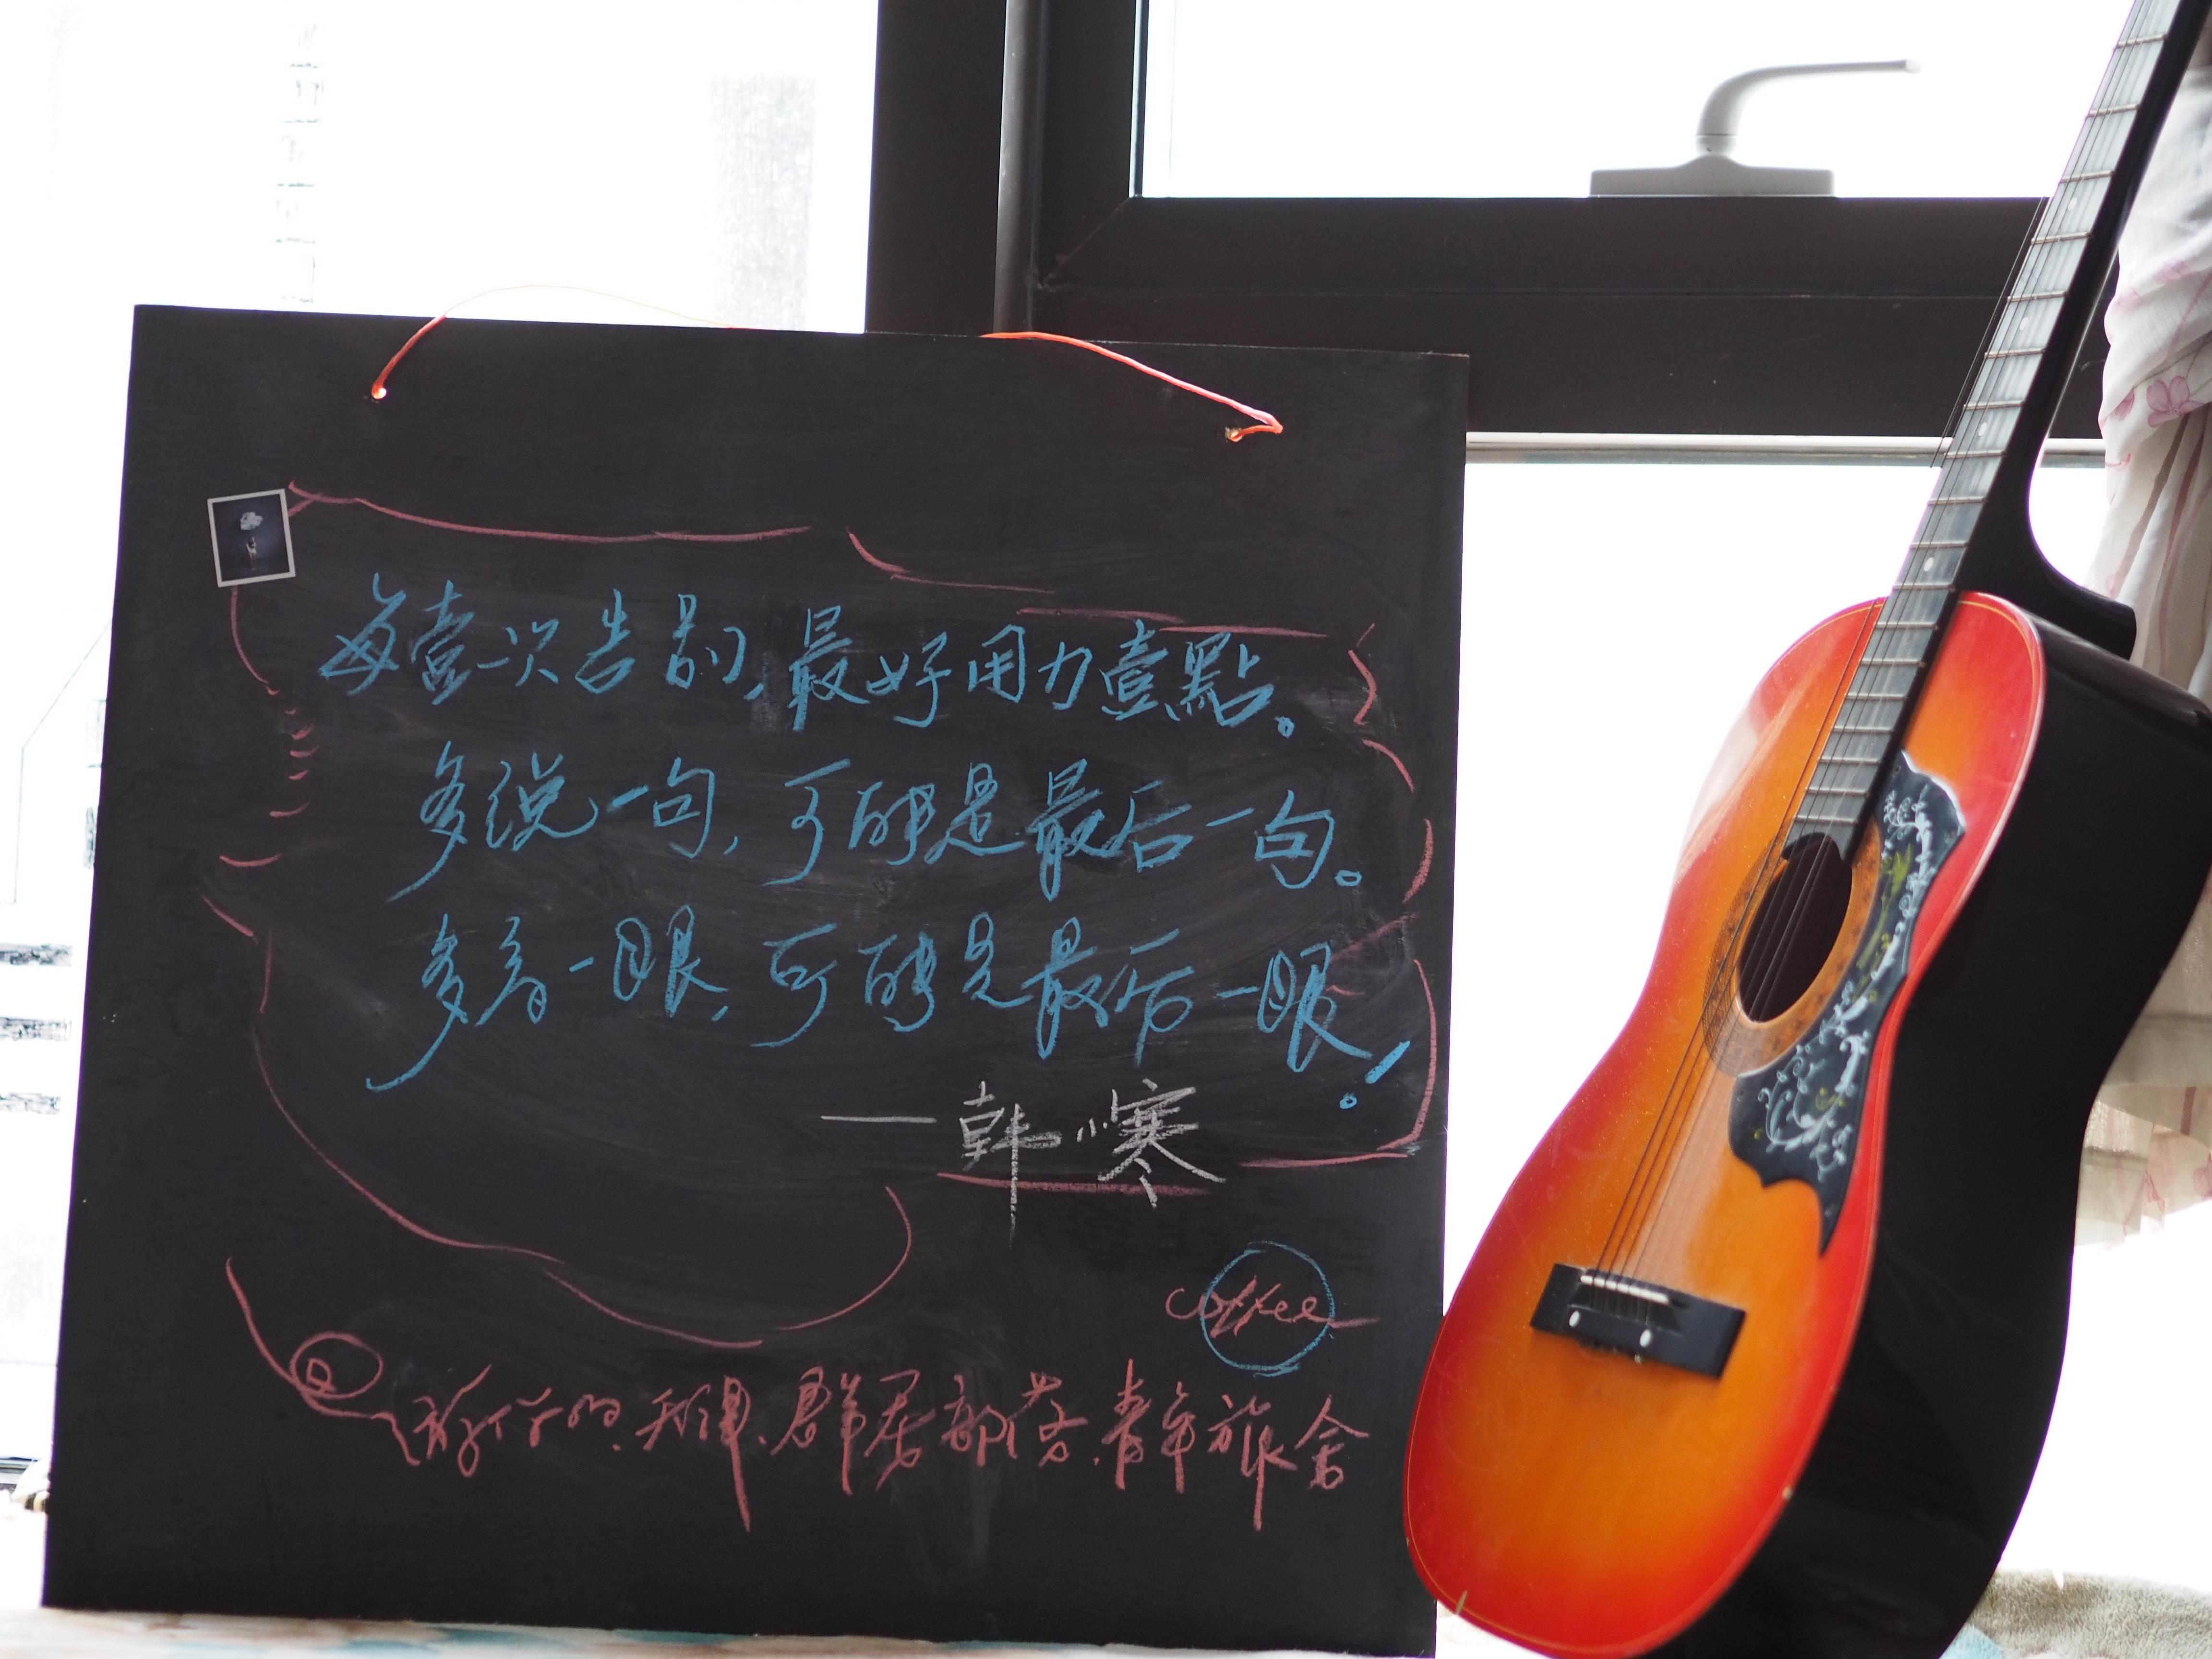 每壹一次告别,最好用力壹點。
多说一句,可能是最后一句。
多看一眼,可能是最后一眼!
—韩寒
coffee
天津、群居部落、青年旅舍